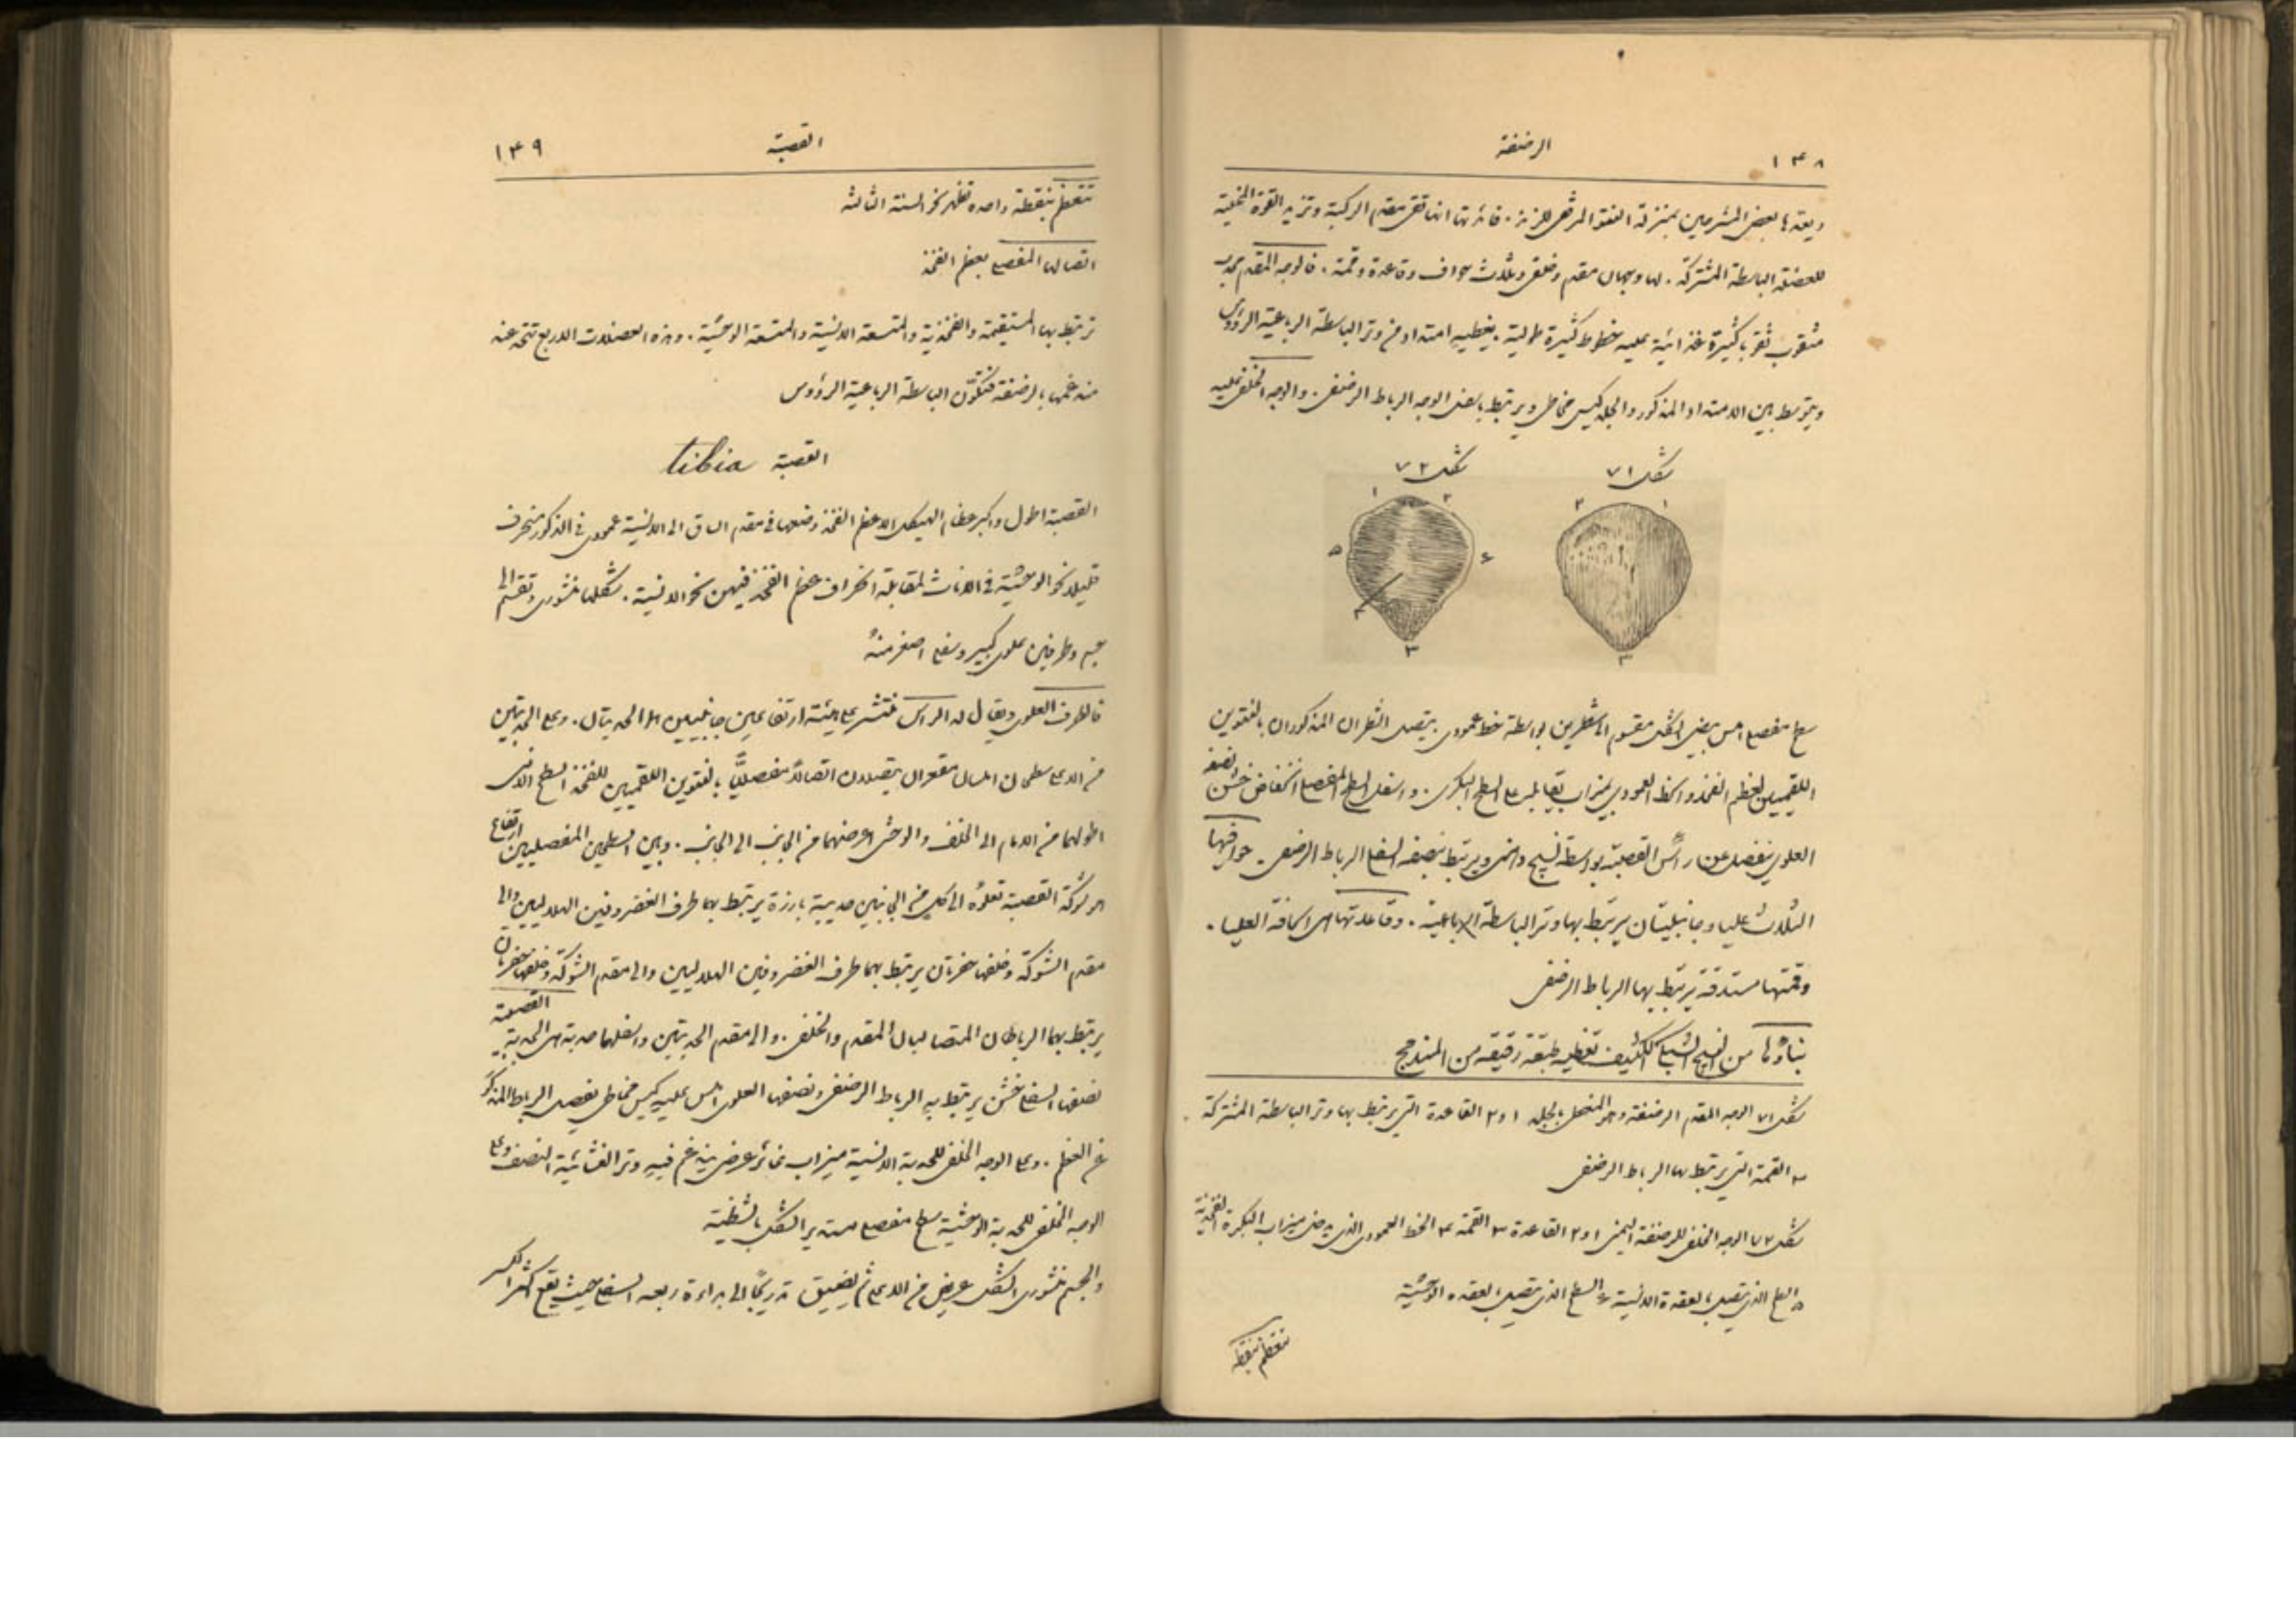 ١٤٨
الرضفة
ويعدها بعض المشرحين بمنزلة النتوء المرفقي للزند. فائدتها انها تقي مقدم الركبة وتزيد القوة المخلية
للعضلة الباسطة المشتركة. لها وجهان مقدم وخلفي وثلاث حواف وقاعدة وقمة. فالوجه المقدم محدب
مثقوب ثقوبا كثيرة غذائية عليه خطوط كثيرة طولية. يغطيه امتداد من وتر الباسطة الرباعية الرؤوس
ويتوسط بين الامتداد المذكور والجلد كيس مخاطي ويرتبط بهذا الوجه الرباط الرضفي. والوجه الخلفي عليه
شكل ٧١
شكل ٧٢
١ ٢ ٣
١ ٢ ٣ ٤ ٥ ٤
سطح مفصلي املس بيضي الشكل مقسوم الى شطرين بواسطة خط عمودي. يتصل الشطران المذكوران بالنتوين
اللقميين لعظم الفخذ والخط العمودي بميزاب يقابله على السطح البكري. واسفل السطح المفصلي انخفاض خشن نصفه
العلوي ينفصل عن راس القصبة بواسطة نسيج دهني ويرتبط بنصفه السفلي الرباط الرضفي. حوافيها
الثلاث عليا وجانبيتان يرتبط بها وتر الباسطة الرباعية. وقاعدتها هي الحافة العليا.
وقمتها مستدقة يرتبط بها الرباط الرضفي
بناؤها من النسيج الشبكي الكثيف تغطيه طبقة رقيقة من المندمج
شكل ٧١ الوجه المقدم الرضفة وهو المتصل بالجلد ١ و٢ القاعدة التي يرتبط بها وتر الباسطة المشتركة
٣ القمة التي يرتبط بها الرباط الرضفي
شكل ٧٢ الوجه الخلفي للرضفة اليمنى ١ و٢ القاعدة ٣ القمة ٤ الخط العمودي الذي ميزاب البكرة الفخذية
٥ السطح الذي يتصل بالعقدة الانسية ٤ السطح الذي يتصل بالعقدة الوحشية
تتعظم بنقطة
القصبة
١٤٩
تتعظم بنقطة واحدة تظهر نحو السنة الثالثة
اتصالها المفصلي بعظم الفخذ
ترتبط بها المستقيمة والفخذية والمتسعة الانسية والمتسعة الوحشية. وهذه العضلات الاربع تتحد عند
اندغامها بالرضفة فتكوّن الباسطة الرباعية الرؤوس
القصبة tibia
القصبة اطول واكبر عظام الهيكل الا عظم الفخذ وضعها في مقدم الساق الى الانسية عمودي في الذكور منحرف
قليلا نحو الوحشية في الاناث لمقابلة انحراف عظم الفخذ فيهن نحو الانسية. شكلها منشوري وتقسم الى
جسم وطرفين علوي كبير وسفلي اصغر منه
فالطرف العلوي ويقال له الراس منتشر على هيئة ارتفاعين جانبيين هما الحدبتان. وعلى الحدبتين
من الاعلى سطحان املسان مقعران يتصلان اتصالا مفصليا بالنتوين اللقميين للفخذ السطح الانسي
اطولهما من الامام الى الخلف والوحشي اعرضهما من الجانب الى الجانب. وبين السطحين المفصليين ارتفاع
هو شوكة القصبة تعلوه الى كل من الجانبين حديبة بارزة يرتبط بهما طرف الغضروفين الهلاليين والى
مقدم الشوكة وخلفها حفرتان يرتبط بهما طرف الغضروفين الهلاليين والى مقدم الشوكة وخلفها حفرتان
يرتبط بهما الرباطان المتصالبان المقدم والخلفي. والى مقدم الحدبتين واسفلهما حدبة هي الحدبة القصبية
نصفها السفلي خشن يرتبط به الرباط الرضفي ونصفها العلوي املس عليه كيس مخاطي يفصل الرباط المذكور
عن العظم. وعلى الوجه الخلفي للحدبة الانسية ميزاب غائر عرضي يندغم فيه وتر الغشائية النصف وعلى
الوجه الخلفي للحدبة الوحشية سطح مفصلي مستدير الشكل بالشظية
والجسم منشوري الشكل عريض من الاعلى ثم يضيق تدريجًا الى بداءة ربعه السفلي حيث يقع اكثر الكسر